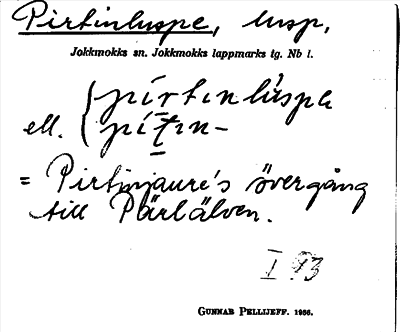 Pirtinluspe, lusp,
Jokkmokks sn. Jokkmokks lappmarks tg. Nb l.
pírtɪnlùspe
ell. pít̠ɪn-
= Pirtinjaure's övergång
till Pärlälven.
I 93
GUNNAR PELLIJEFF. 1936.